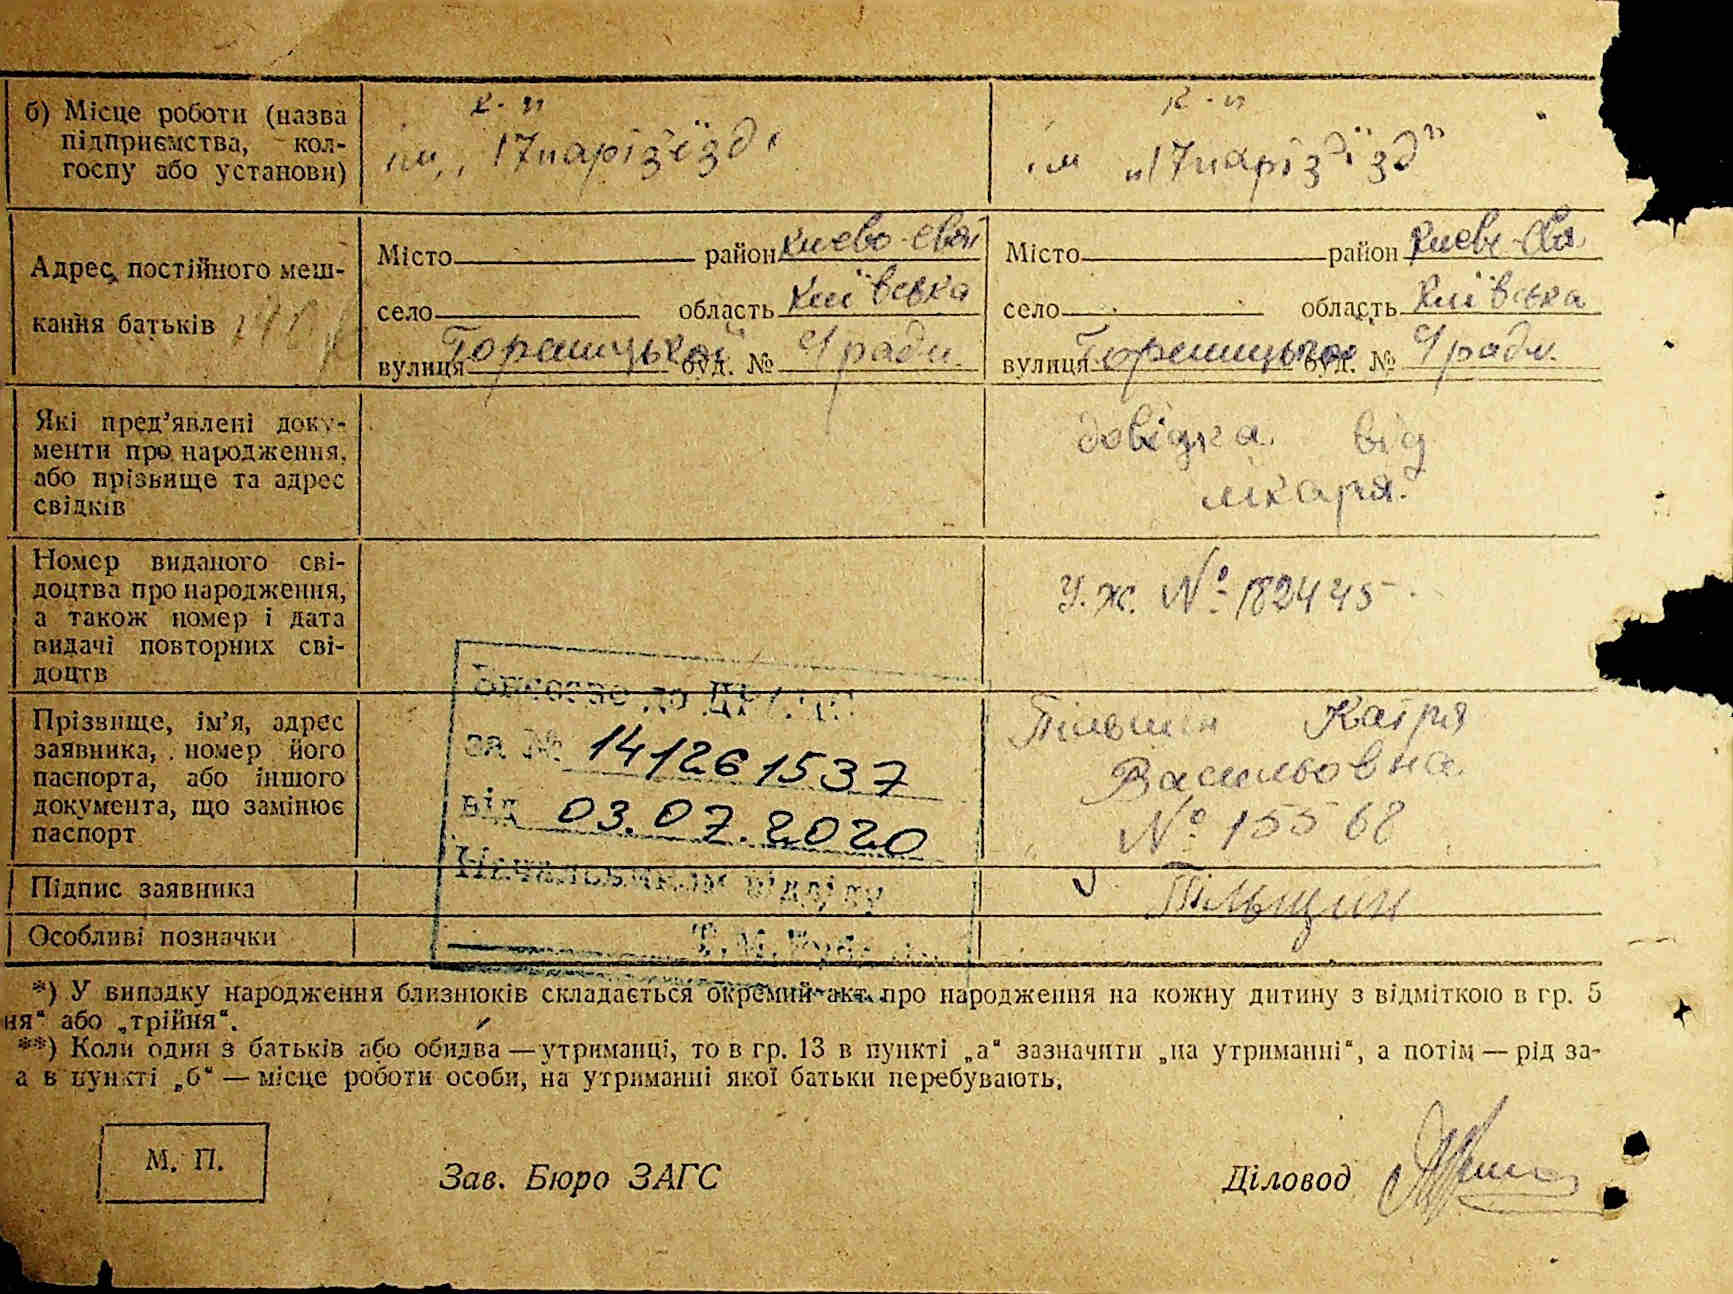 б) Місце роботи (назва
підприємства, кол-
госпу або установи)
к-п
ім „17парізʼїзд"
к-п
ім „17парізʼїзд"
Адрес постійного меш-
кання батьків
Місто район Києво-Свя
село область Київська
вулиця Горениської буд. № с/ради
Місто район Києво-Свя
село область Київська
вулиця Горениської буд. № с/ради
Які пред’явлені доку-
менти про народження,
або прізвище та адрес
свідків
довідка від
лікаря.
Номер виданого сві-
доцтва про народження,
а також номер і дата
видачі повторних сві-
доцтв
У.Ж. № 182445
Прізвище, ім’я, адрес
заявника, номер його
паспорта, або іншого
документа, що замінює
паспорт
Катря
Васильовна
№ 15568
Внесено до ДРАЦС
за № 141261537
від 03.07.2020
Начальником відділу
Підпис заявника
Тільщин
Особливі позначки
*) У випадку народження близнюків складається окремий акт про народження на кожну дитину з відміткою в гр. 5
ня“ або „трійня“.
**) Коли один з батьків або обидва — утриманці, то в гр. 13 в пункті „а“ зазначити „на утриманні“, а потім — рід за-
а в пункті „б“ — місце роботи особи, на утриманні якої батьки перебувають.
М. П.
Зав. Бюро ЗАГС
Діловод